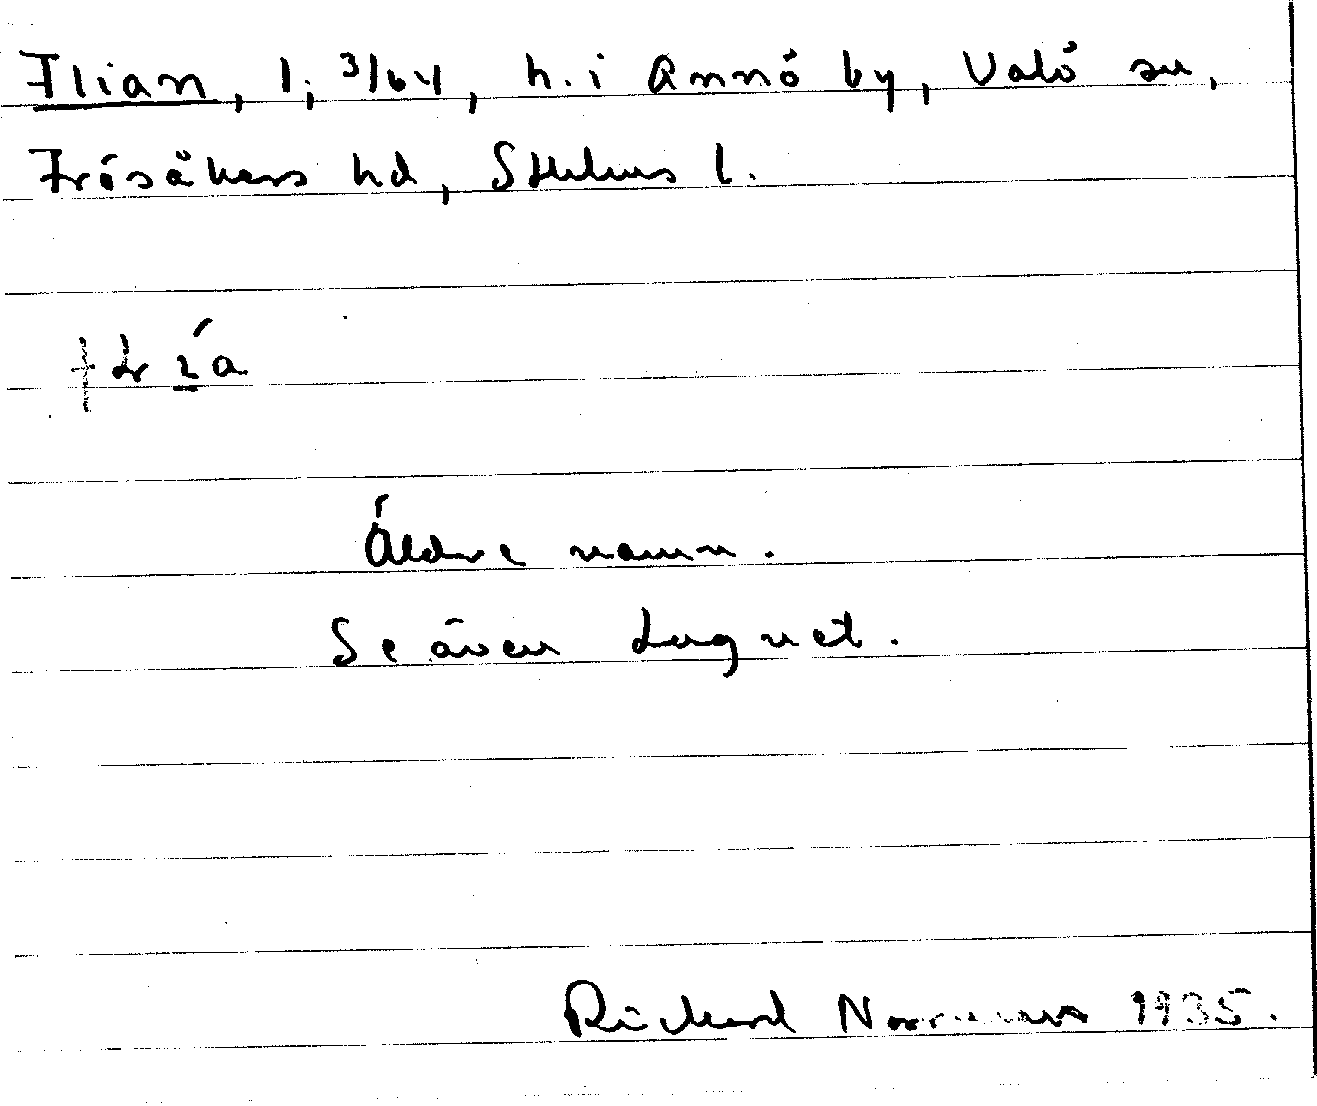 Flian, l, 3/64, h. i Annö by, Valö sn,
Frösåkers hd, Sthlms l.
Äldre namn.
Se även Lugnet.
Rickard Norrman 1935.